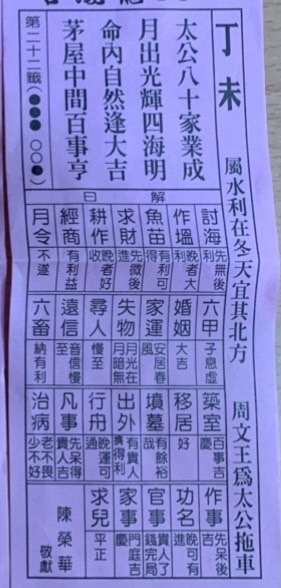 丁未 屬水利在冬天宜其北方 周文王為太公拖車
太公八十家業成
月出光輝四海明
命內自然逢大吉
茅屋中間百事亨
第二十二籤(●●● ○○●)
解曰
討海 先無後利
作塭 晚者大利
魚苗 有利可得
求財 先微後進
耕作 晚者好收
經商 有利益
月令 不遂
六甲 子息虛
婚姻 大吉
家運 安居春風
失物 月光在月暗無
尋人 慢至
遠信 音信慢至
六畜 納有利
築室 百事吉慶
移居 好
墳墓 有餘裕哉
出外 有貴人得利
行舟 晚運可過
凡事 先呆得貴人吉
治病 老不畏少不好
作事 先呆後吉
功名 晚可有進
官事 貴人了錢完局
家事 門庭吉慶
求兒 平正
陳榮華 敬獻